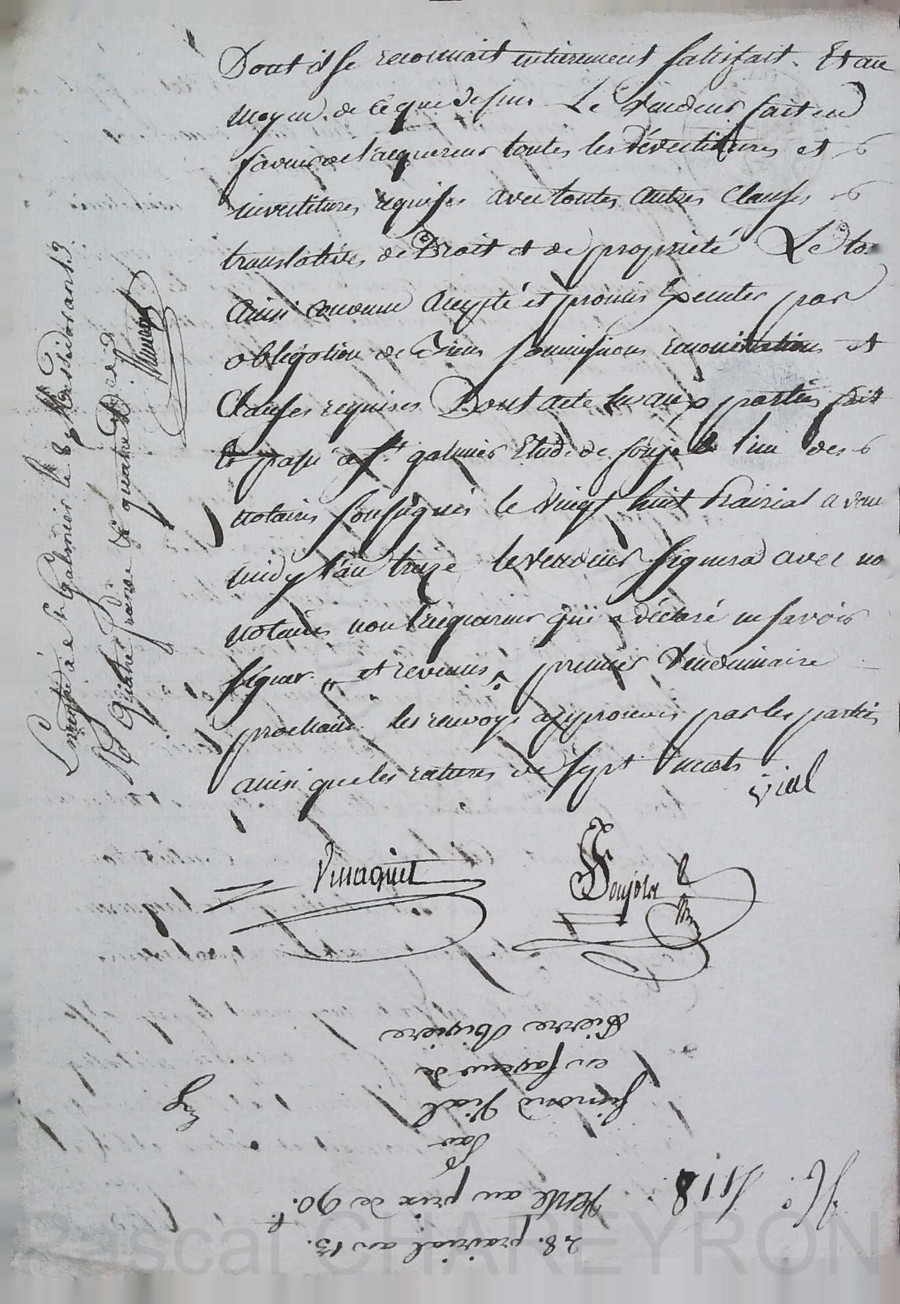 Dont il se reconnait entierement satisfait. Et au
moyen de ce que dessus Le Vendeur fait en
faveur de l'acquereur toutes les dévestitures et
investitures requises avec toutes autres Clauses
translatives de Droit et de propriété Le to
ainsi convenu accepté et promis Executer par
obligation de Biens soumissions renonciations et
Clauses requises Dont acte lu aux parties fait
et passé a St. galmier Etude de l'un des
notaires soussignés le vingt huit Prairial avant
midy l'an treize le vendeur signera avec no
notaires non l'acquereur qui a déclaré ne savoir
signer et revenus premier Vendemiaire
prochain les renvoys approuvés par les parties
ainsi que les ratures de sept mots
vial
Vinaguet
Ponjola
Enregistré a St Galmier le 8 Messidor an 13
28. prairial an 13.
Vente au prix de 90.f
Par
Simond Vial
en faveur de
Pierre
N.o 1118
Pascal CHAREYRON